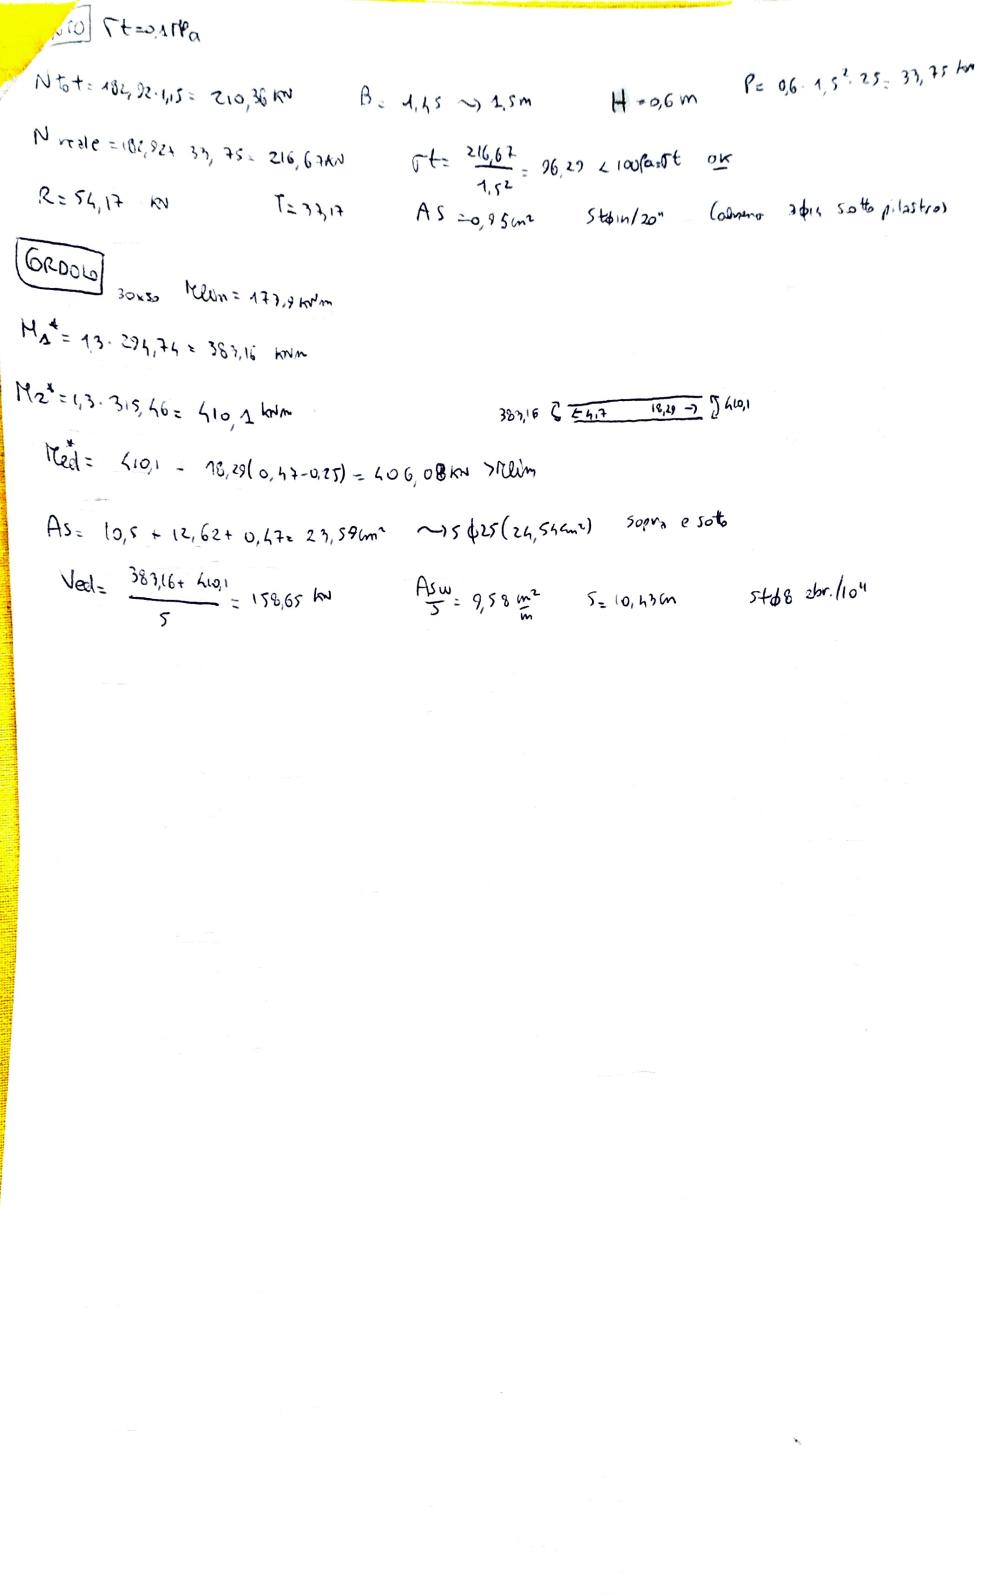 σt=0,1MPa
Ntot= 182,92·1,15= 210,36 KN B= 1,45 ~> 1,5m H=0,6m P= 0,6·1,5²·25= 33,75 kN
N reale =182,92+ 33,75= 216,67KN σt= 216,67/1,5² = 96,29 < 100kPa=σt OK
R= 54,17 KN T= 37,17 AS =0,95cm² St 20" (almeno 3ϕ14 sotto pilastro)
CORDOLO
30x50 Mlim = 177,9 kN·m
M1*= 1,3·294,74 = 383,16 kNm
M2*=1,3·315,46= 410,1 kNm 383,16 18,29 → 410,1
Med*= 410,1 - 18,29(0,47-0,25)= 406,08KN >Mlim
As= 10,5 + 12,62+ 0,47= 23,59cm² ~>5ϕ25(24,54cm²) sopra e sotto
Ved= 383,16+ 410,1/5 = 158,65 kN Asw/s = 9,58 cm²/m s= 10,43cm stϕ8 2br./10"